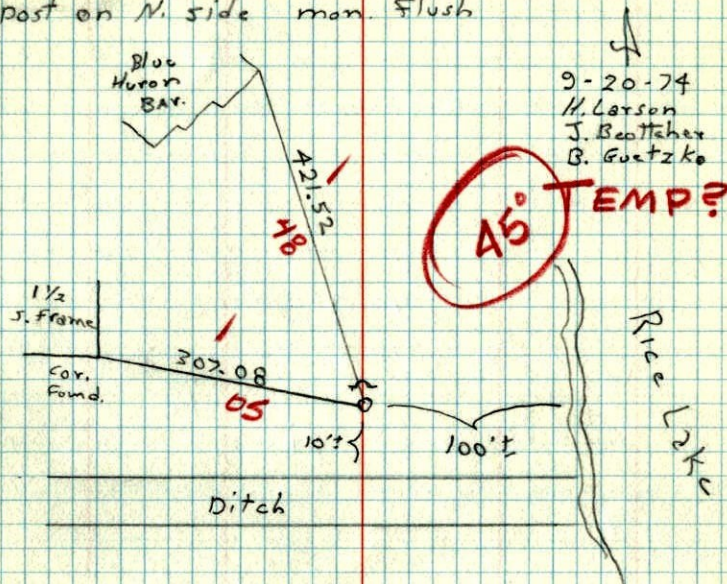 post on N. side mon. Flush
Blue
Huron
BAr.
9-20-74
H. Larson
J. Beottcher
B. Guetzko
421.52
48
45°
TEMP?
1½
S. Frame
Cor.
Found.
307.08
05
10'±
100'±
Rice Lake
Ditch